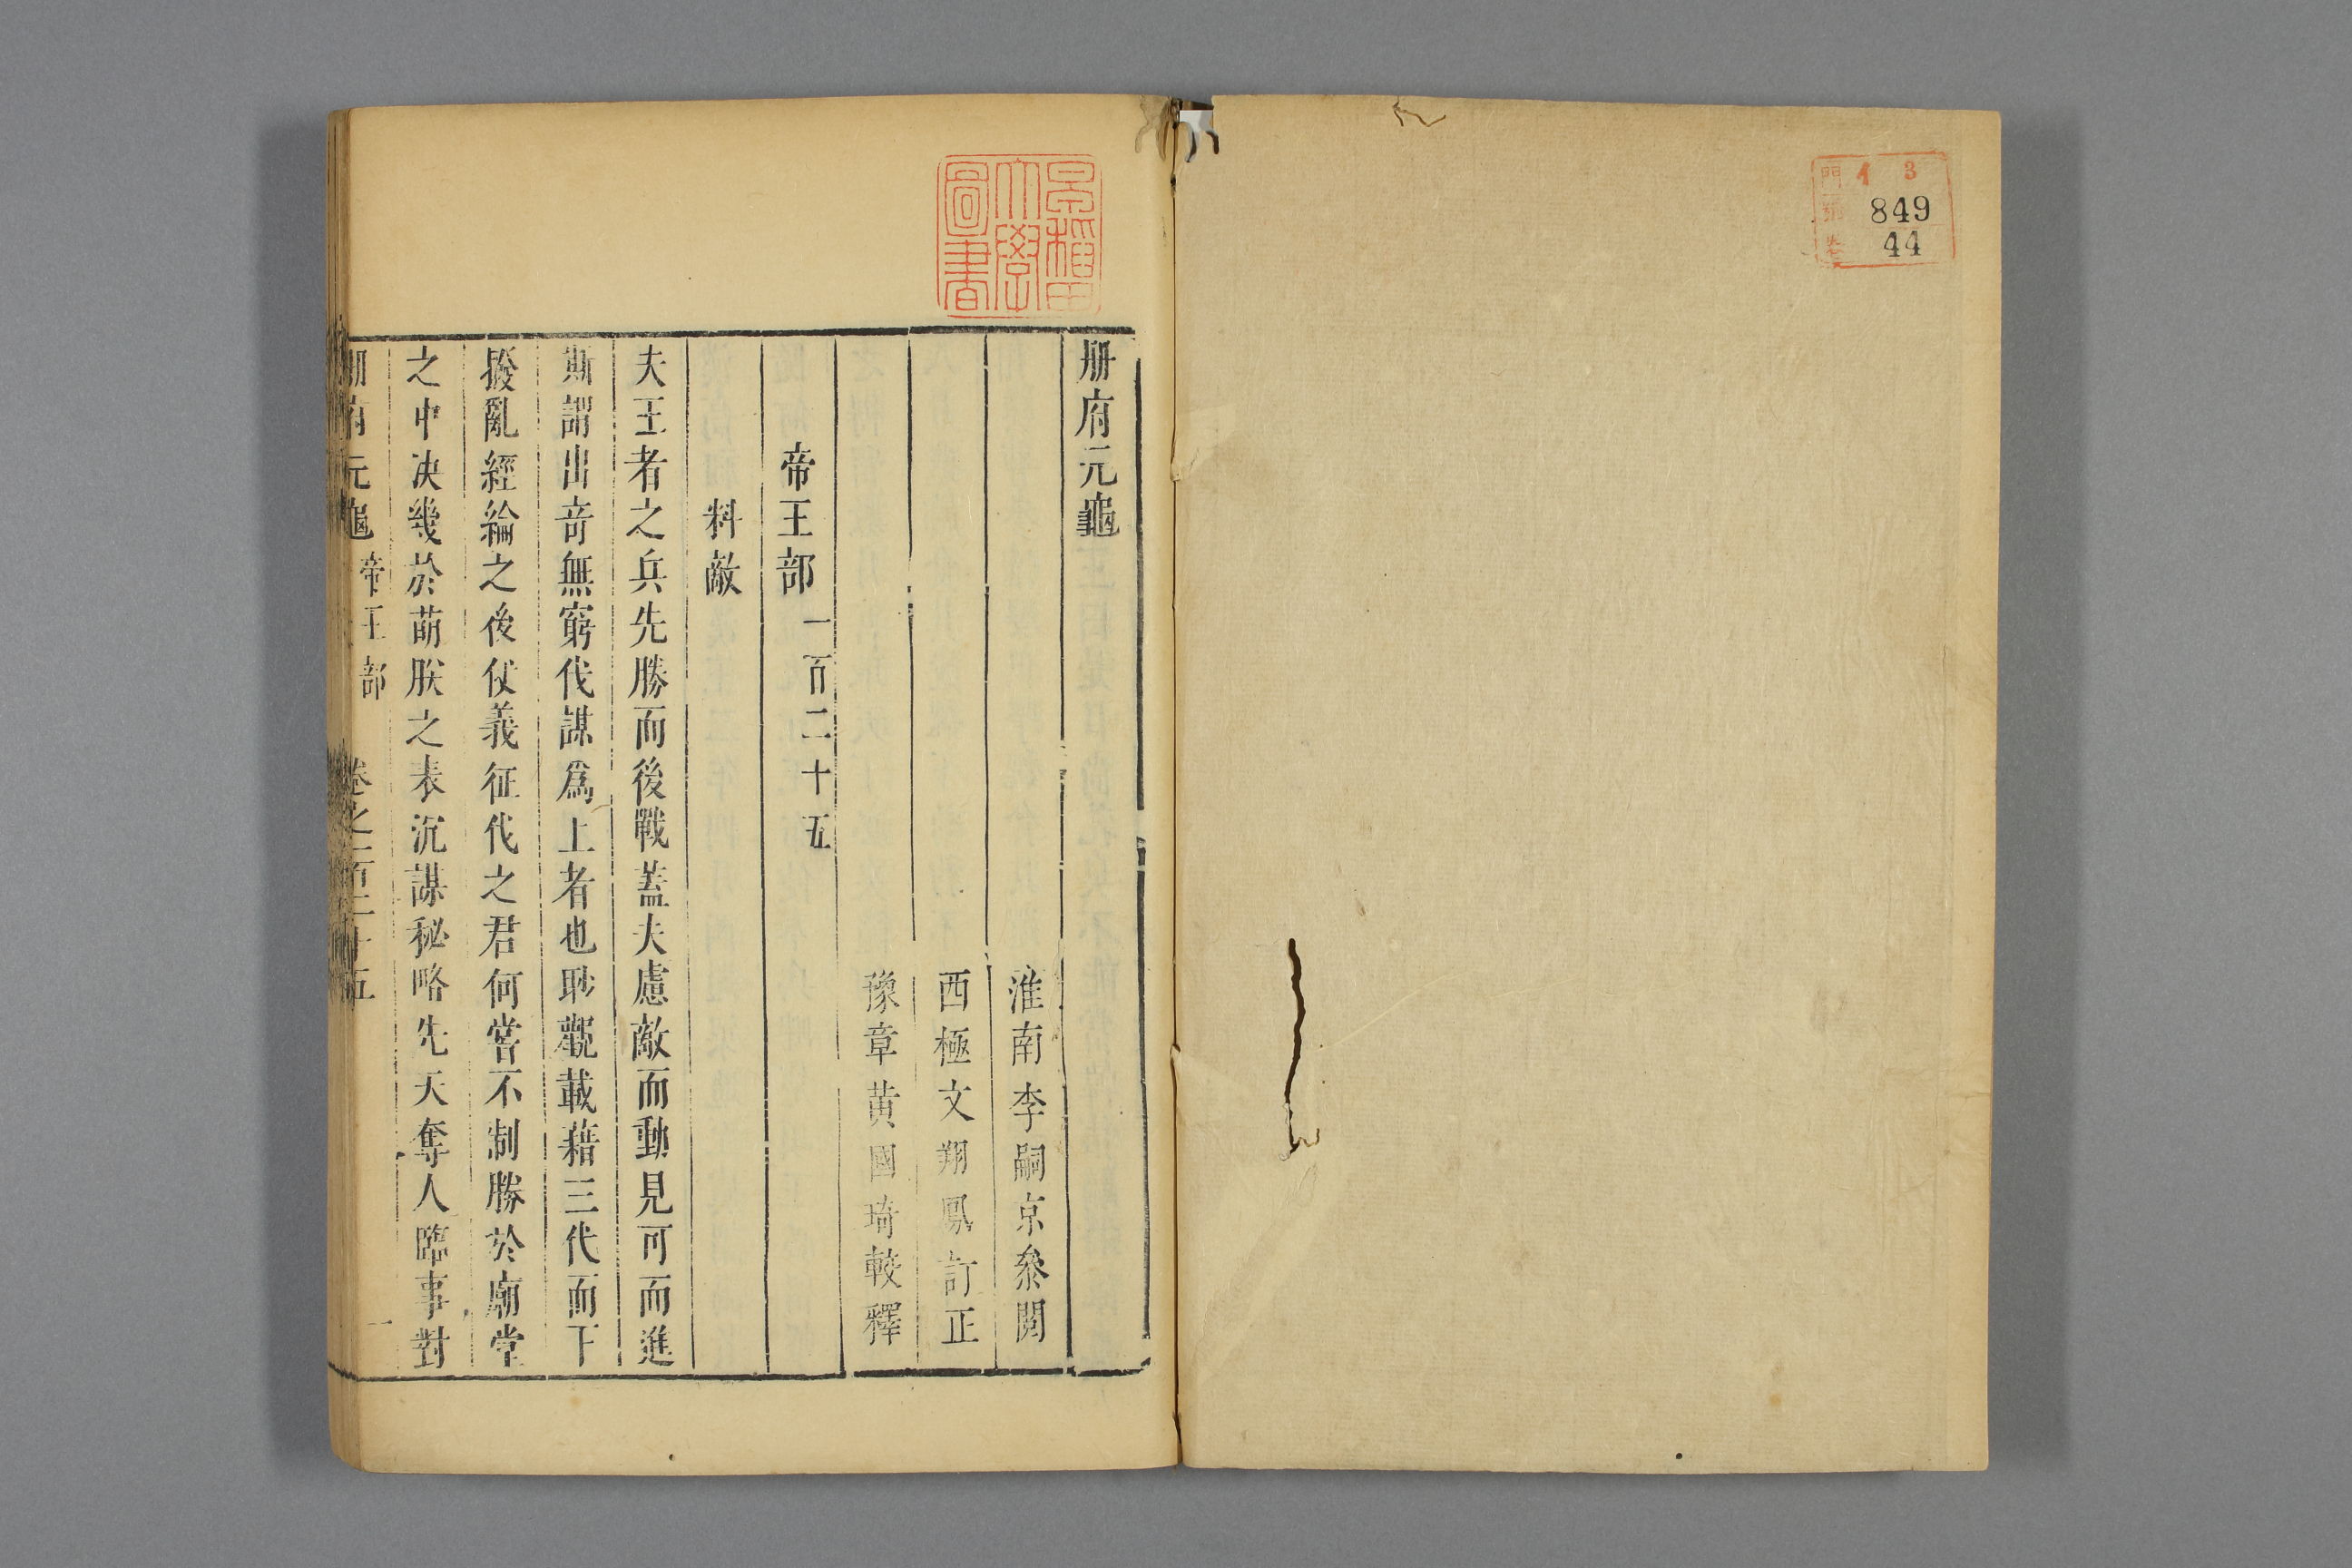 門 イ 3
849
44
早稲田大學圖書
册府元龜
淮南李嗣京叅閱
西極文翔鳳訂正
豫章黄國琦較釋
帝王部一百二十五
料敵
夫王者之兵先勝而後戰葢夫慮敵而動見可而進
斯謂出竒無窮伐謀爲上者也眇觀載藉三代而下
撥亂經綸之後仗義征伐之君何嘗不制勝於廟堂
之中决幾於萌朕之表沉謀秘略先天奪人臨事對
册府元龜 帝王部 卷之一百二十五 一